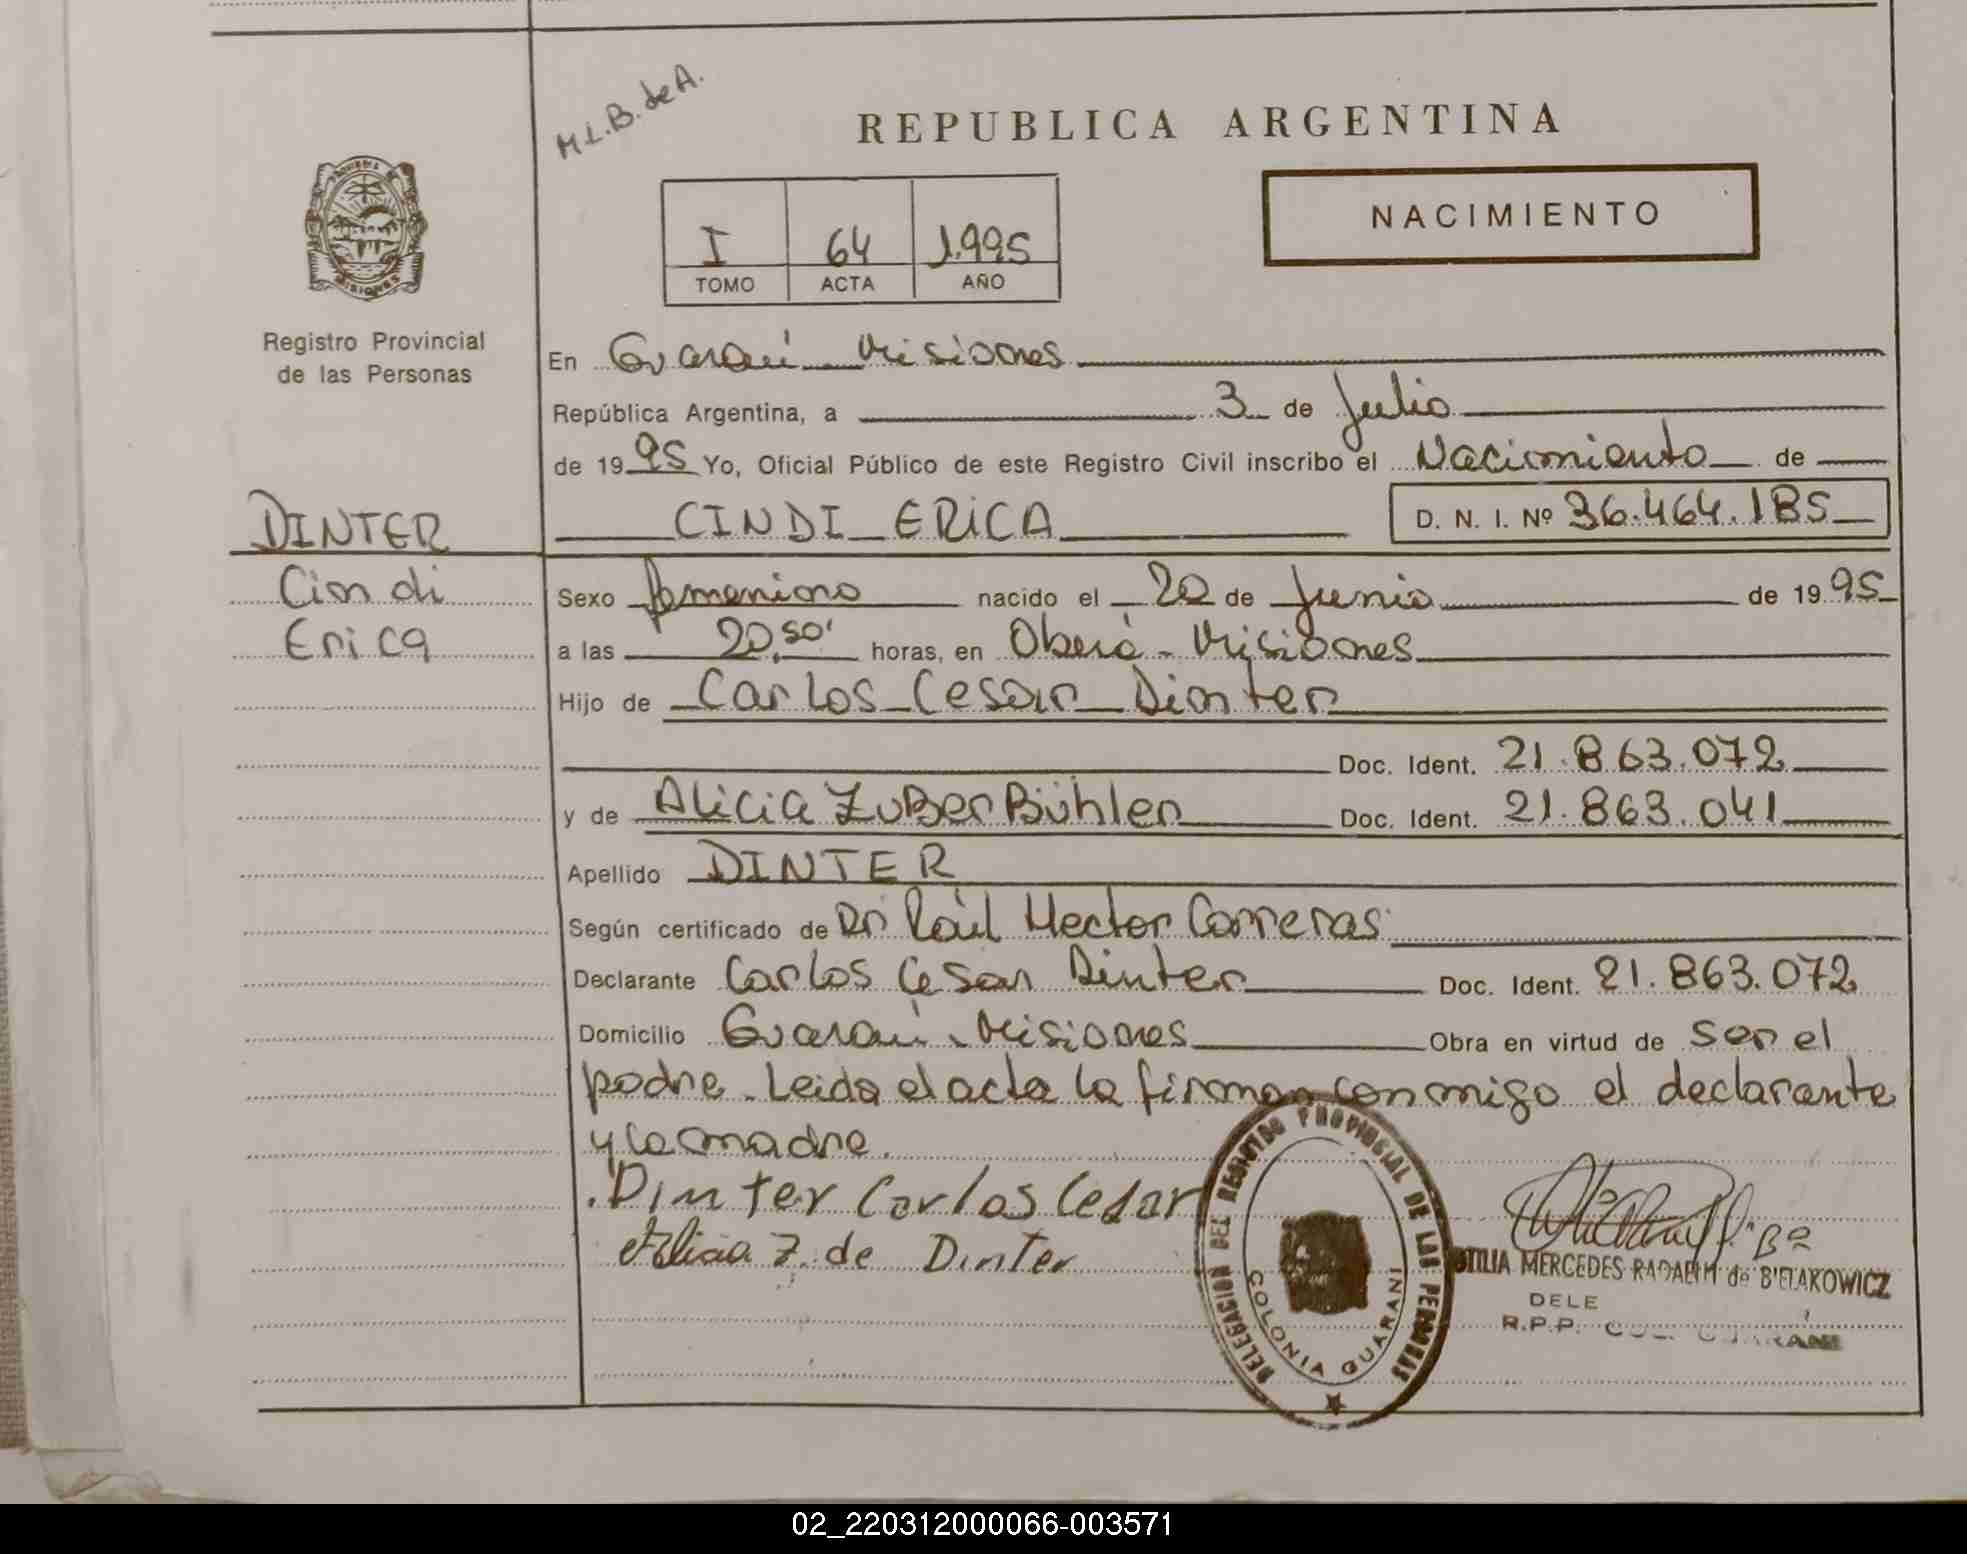 M.L.B. de A.
REPUBLICA ARGENTINA
NACIMIENTO
I 64 1.995
TOMO ACTA AÑO
Registro Provincial
de las Personas
En Guaraní Misiones
República Argentina, a 3 de Julio
de 1995 Yo, Oficial Público de este Registro Civil inscribo el Nacimiento de
DINTER CINDI ERICA D. N. I. Nº 36.464.185
Cindi Sexo femenino nacido el 20 de Junio de 1995
Erica a las 20,50' horas, en Oberá - Misiones
Hijo de Carlos Cesar Dinter
Doc. Ident. 21.863.072
y de Alicia ZuBerBühler Doc. Ident. 21.863.041
Apellido DINTER
Según certificado de Dr Raúl Hector Carreras
Declarante Carlos Cesar Dinter Doc. Ident. 21.863.072
Domicilio Guaraní - Misiones Obra en virtud de ser el
padre. Leida el acta la firman conmigo el declarante
y la madre.
Dinter Carlos Cesar
Alicia Z. de Dinter
DELEGACION DEL REGISTRO PROVINCIAL DE LAS PERSONAS
COLONIA GUARANI
MERCEDES de B'ETAKOWICZ
DELE
R.P.P.
02_220312000066-003571